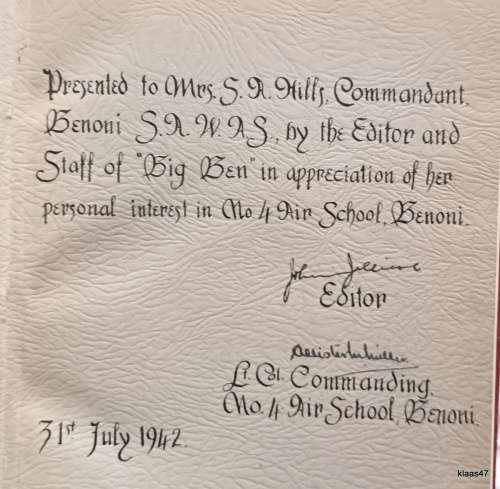 Presented to Mrs. S. A. Hills, Commandant,
Benoni S.A.W.A.S., by the Editor and
Staff of "Big Ben" in appreciation of her
personal interest in No 4 Air School, Benoni.
John
Editor
Lt. Col. Commanding,
No. 4 Air School, Benoni.
31st July 1942.
klaas47